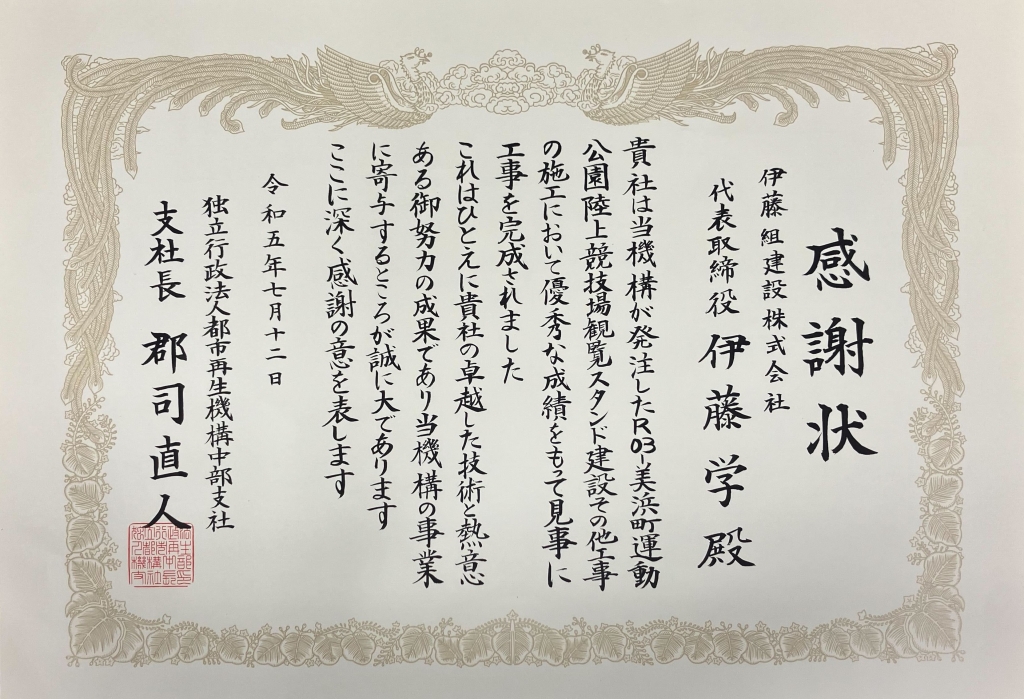 感謝状
伊藤組建設株式会社
代表取締役 伊藤学殿
貴社は当機構が発注したR03-美浜町運動
公園陸上競技場観覧スタンド建設その他工事
の施工において優秀な成績をもって見事に
工事を完成されました
これはひとえに貴社の卓越した技術と熱意
ある御努力の成果であり当機構の事業
に寄与するところが誠に大であります
ここに深く感謝の意を表します
令和五年七月十二日
独立行政法人都市再生機構中部支社
支社長 郡司直人